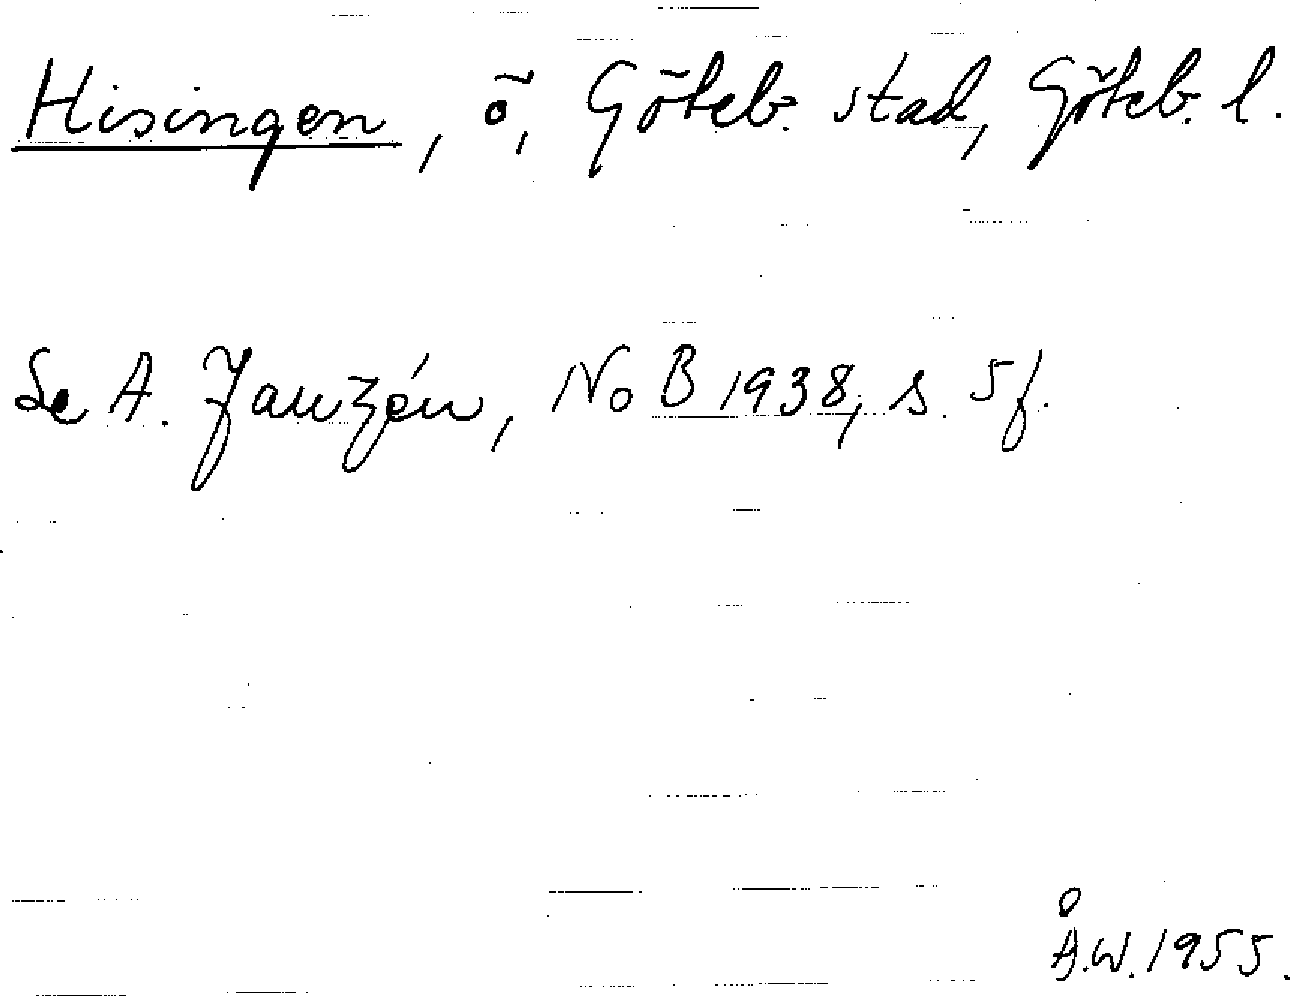 Hisingen, ö, Göteb. stad, Göteb. l.
Se A. Janzén, NoB 1938, s. 5f.
Å.W. 1955.